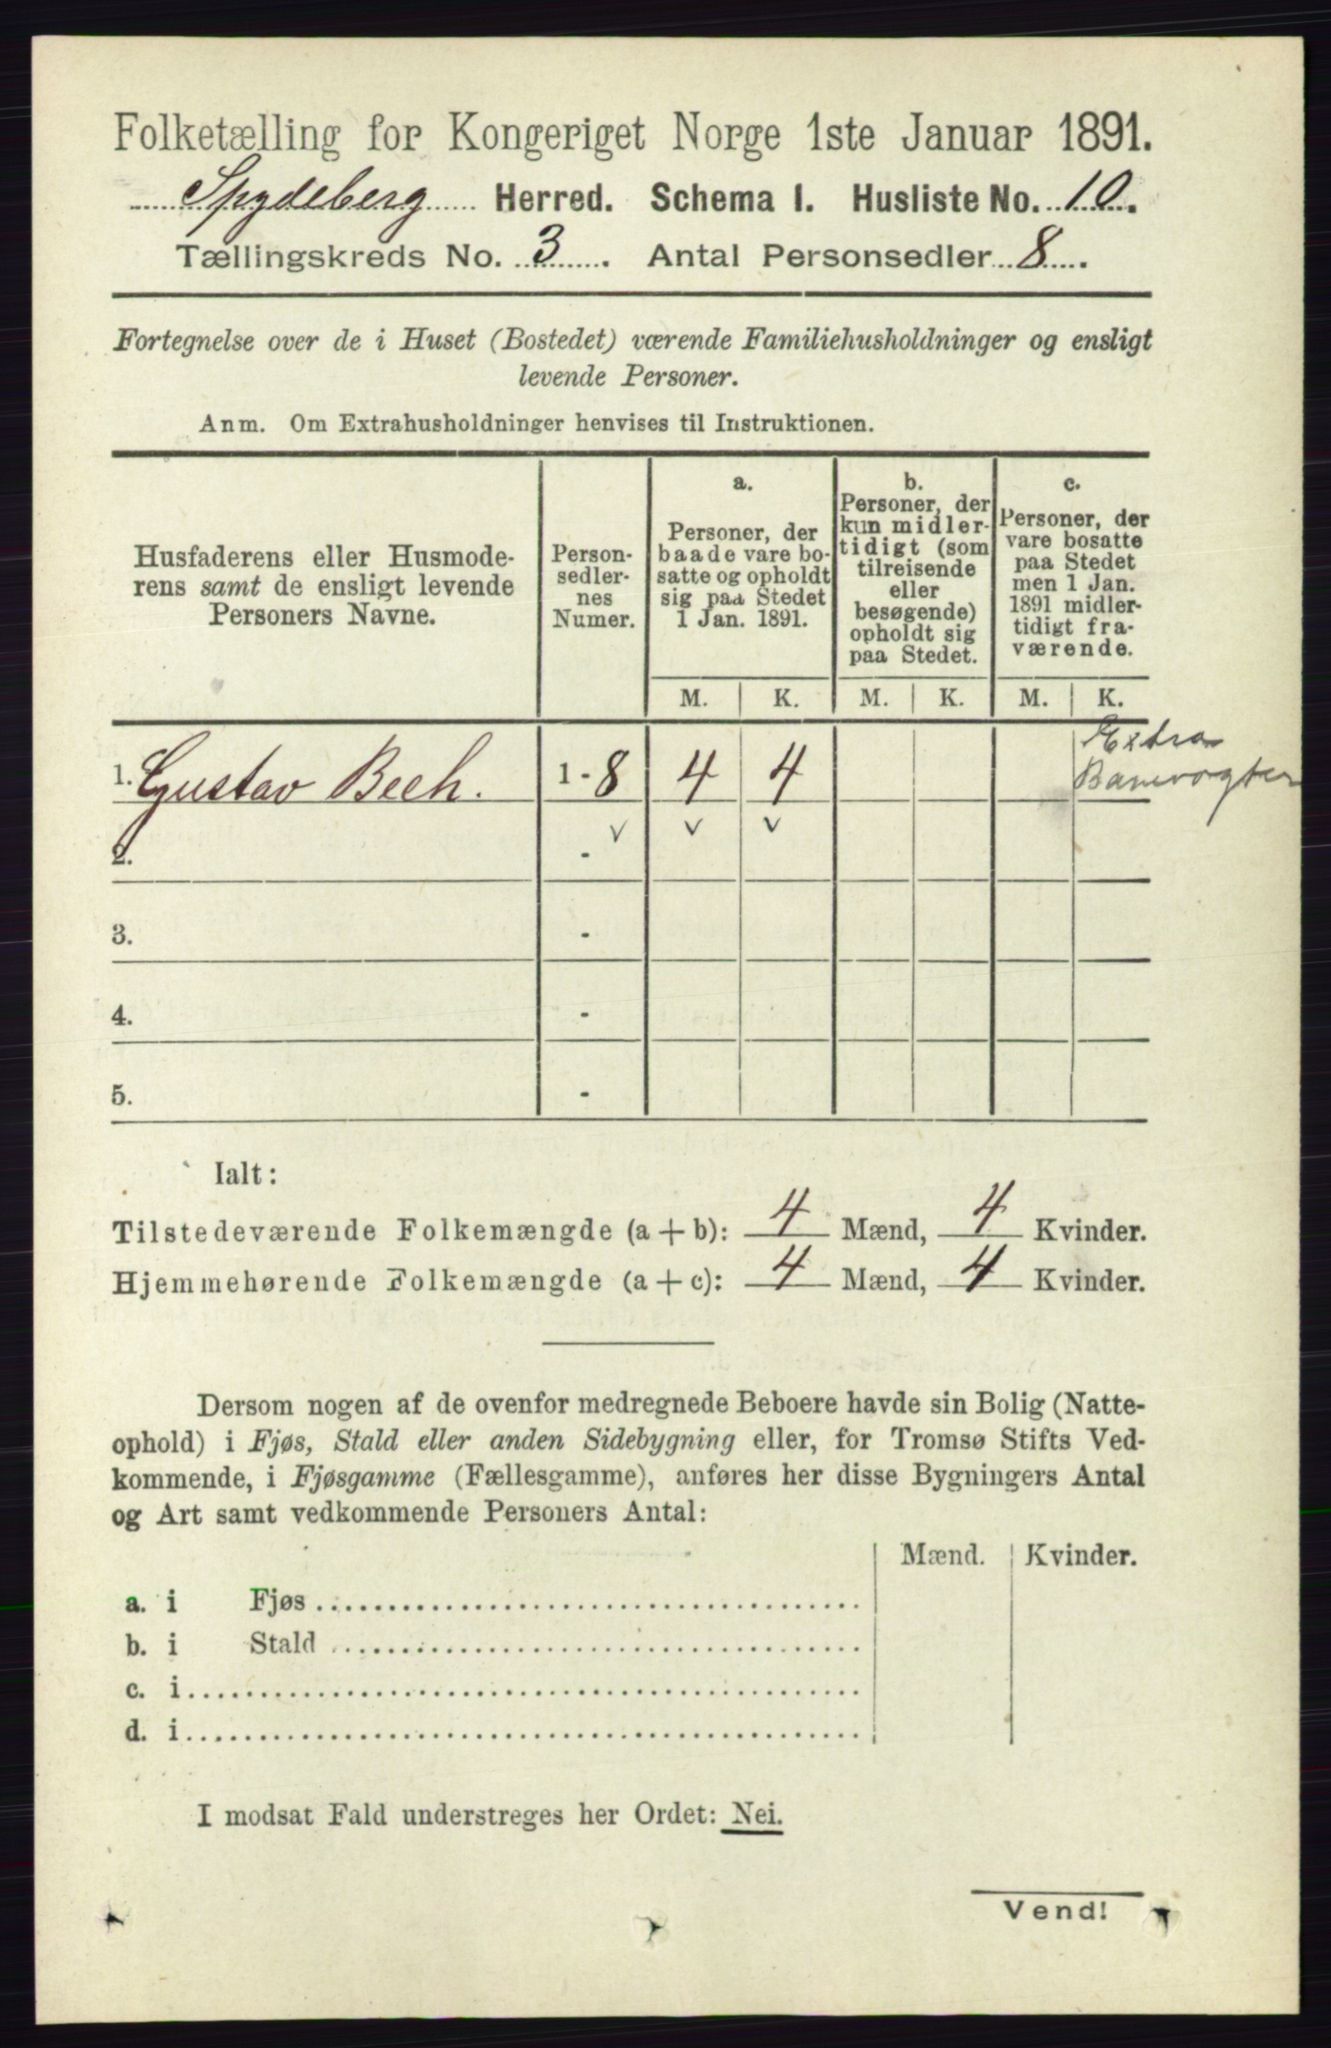 Folketælling for Kongeriget Norge 1ste Januar 1891.
Spydeberg Herred. Schema I. Husliste No. 10.
Tællingskreds No. 3. Antal Personsedler 8.
Fortegnelse over de i Huset (Bostedet) værende Familiehusholdninger og ensligt
levende Personer.
Anm. Om Extrahusholdninger henvises til Instruktionen.
Husfaderens eller Husmode-
rens samt de ensligt levende
Personers Navne.
Person-
sedler-
nes
Numer.
a.
Personer, der
baade vare bo-
satte og opholdt
sig paa Stedet
1 Jan. 1891.
b.
Personer, der
kun midler-
tidigt (som
tilreisende
eller
besøgende)
opholdt sig
paa Stedet.
c.
Personer, der
vare bosatte
paa Stedet
men 1 Jan.
1891 midler-
tidigt fra-
værende.
M. K. M. K. M. K.
Extra
Banevogter
1. Gustav Bech. 1-8 4 4
2. -
3. -
4. -
5. -
Ialt:
Tilstedeværende Folkemængde (a + b): 4 Mænd, 4 Kvinder.
Hjemmehørende Folkemængde (a + c): 4 Mænd, 4 Kvinder.
Dersom nogen af de ovenfor medregnede Beboere havde sin Bolig (Natte-
ophold) i Fjøs, Stald eller anden Sidebygning eller, for Tromsø Stifts Ved-
kommende, i Fjøsgamme (Fællesgamme), anføres her disse Bygningers Antal
og Art samt vedkommende Personers Antal:
Mænd. Kvinder.
a. i Fjøs
b. i Stald
c. i
d. i
I modsat Fald understreges her Ordet: Nei.
Vend!